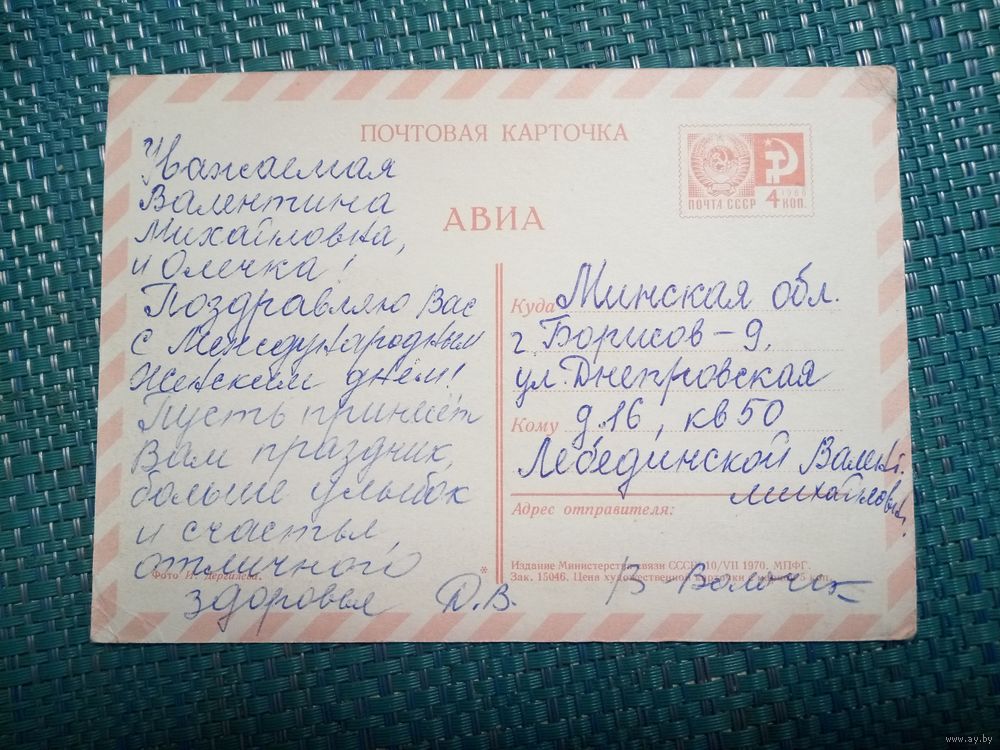 ПОЧТОВАЯ КАРТОЧКА
АВИА
ПОЧТА СССР
1966
4 КОП.
Уважаемая
Валентина
Михайловна,
и Олечка!
Поздравляю Вас
с Международным
Женским днём!
Пусть принесёт
Вам праздник,
больше улыбок
и счастья,
отличного
здоровья Д.В.
Фото И. Дергилева.
Куда Минская обл.
г. Борисов-9,
ул. Днепровская
Кому д. 16, кв 50
Лебединской Валент.
Михайловн.
Адрес отправителя:
* Издание Министерства связи СССР. 10/VII 1970. МПФГ.
Зак. 15046. Цена художественной карточки с маркой 5 коп.
www.ay.by